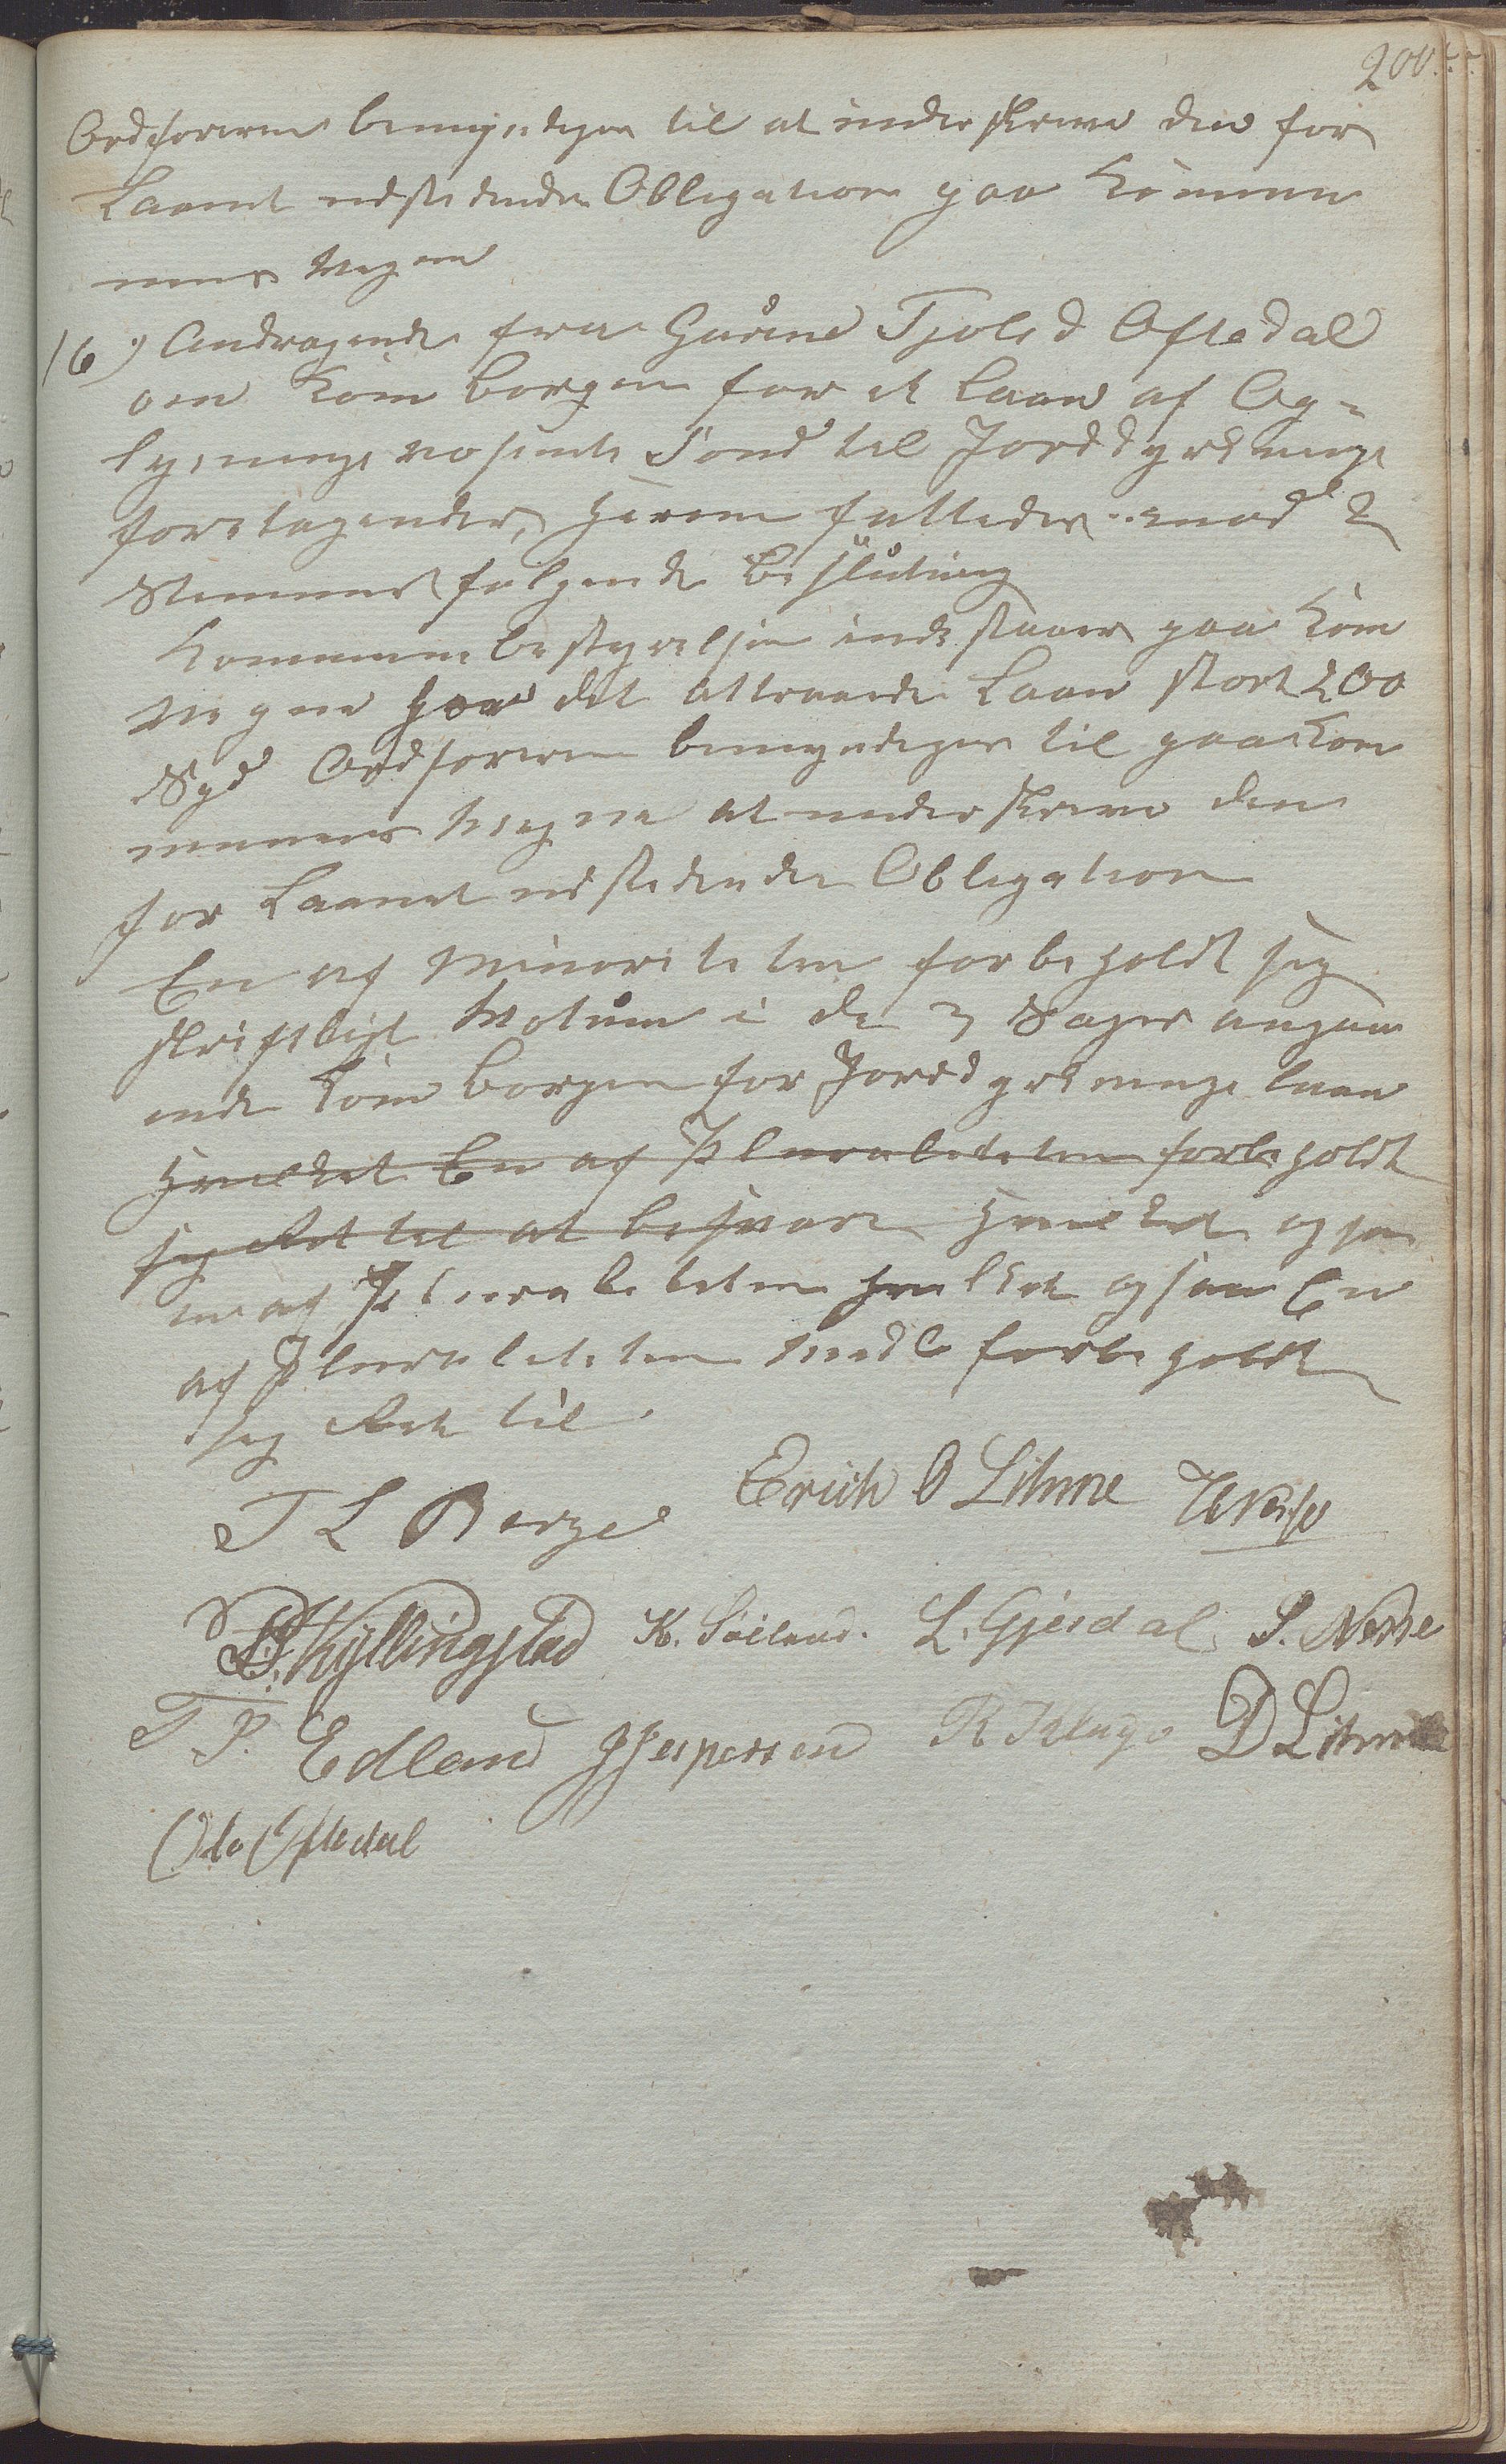 200.
Ordføreren bemyndiges til at underskrive den for
Laanet udstedende Obligation paa Kommu
nens Vegne
16) Andragende fra Gunne Tjolsd Oftedal
om Kom borgen for et Laan af Op-
lysningsvæsenets Fond til Jorddyrknings
foretagender, Herom fattedes mod 2
Stemmer følgende Beslutning
Kommunebestyrelsen indestaaer paa Kom
Vegne for det attraaede Laan stort 200
Spd Ordføreren bemyndiges til paa Kom
munens Vegne at underskrive den
for Laanet udstedende Obligation
En af Minoriteten forbeholdt sig
skriftligt Votum i de 3 Sager angaa
ende Kom borgen for Jorddyrkningslaan
hvilket En af Pluraliteten forbeholdt
sig Ret til at besvare hvilket ogsaa
en af Pluraliteten hvilket ogsaa En
af Pluraliteten forbeholdt
sig Ret til
T L Berge Erich O Littune
Kyllingstad K. Søiland. L. Gjesdal S. Nesse
T P. Edland J Jespersen R Kluge D Limes
Ola Oftedal